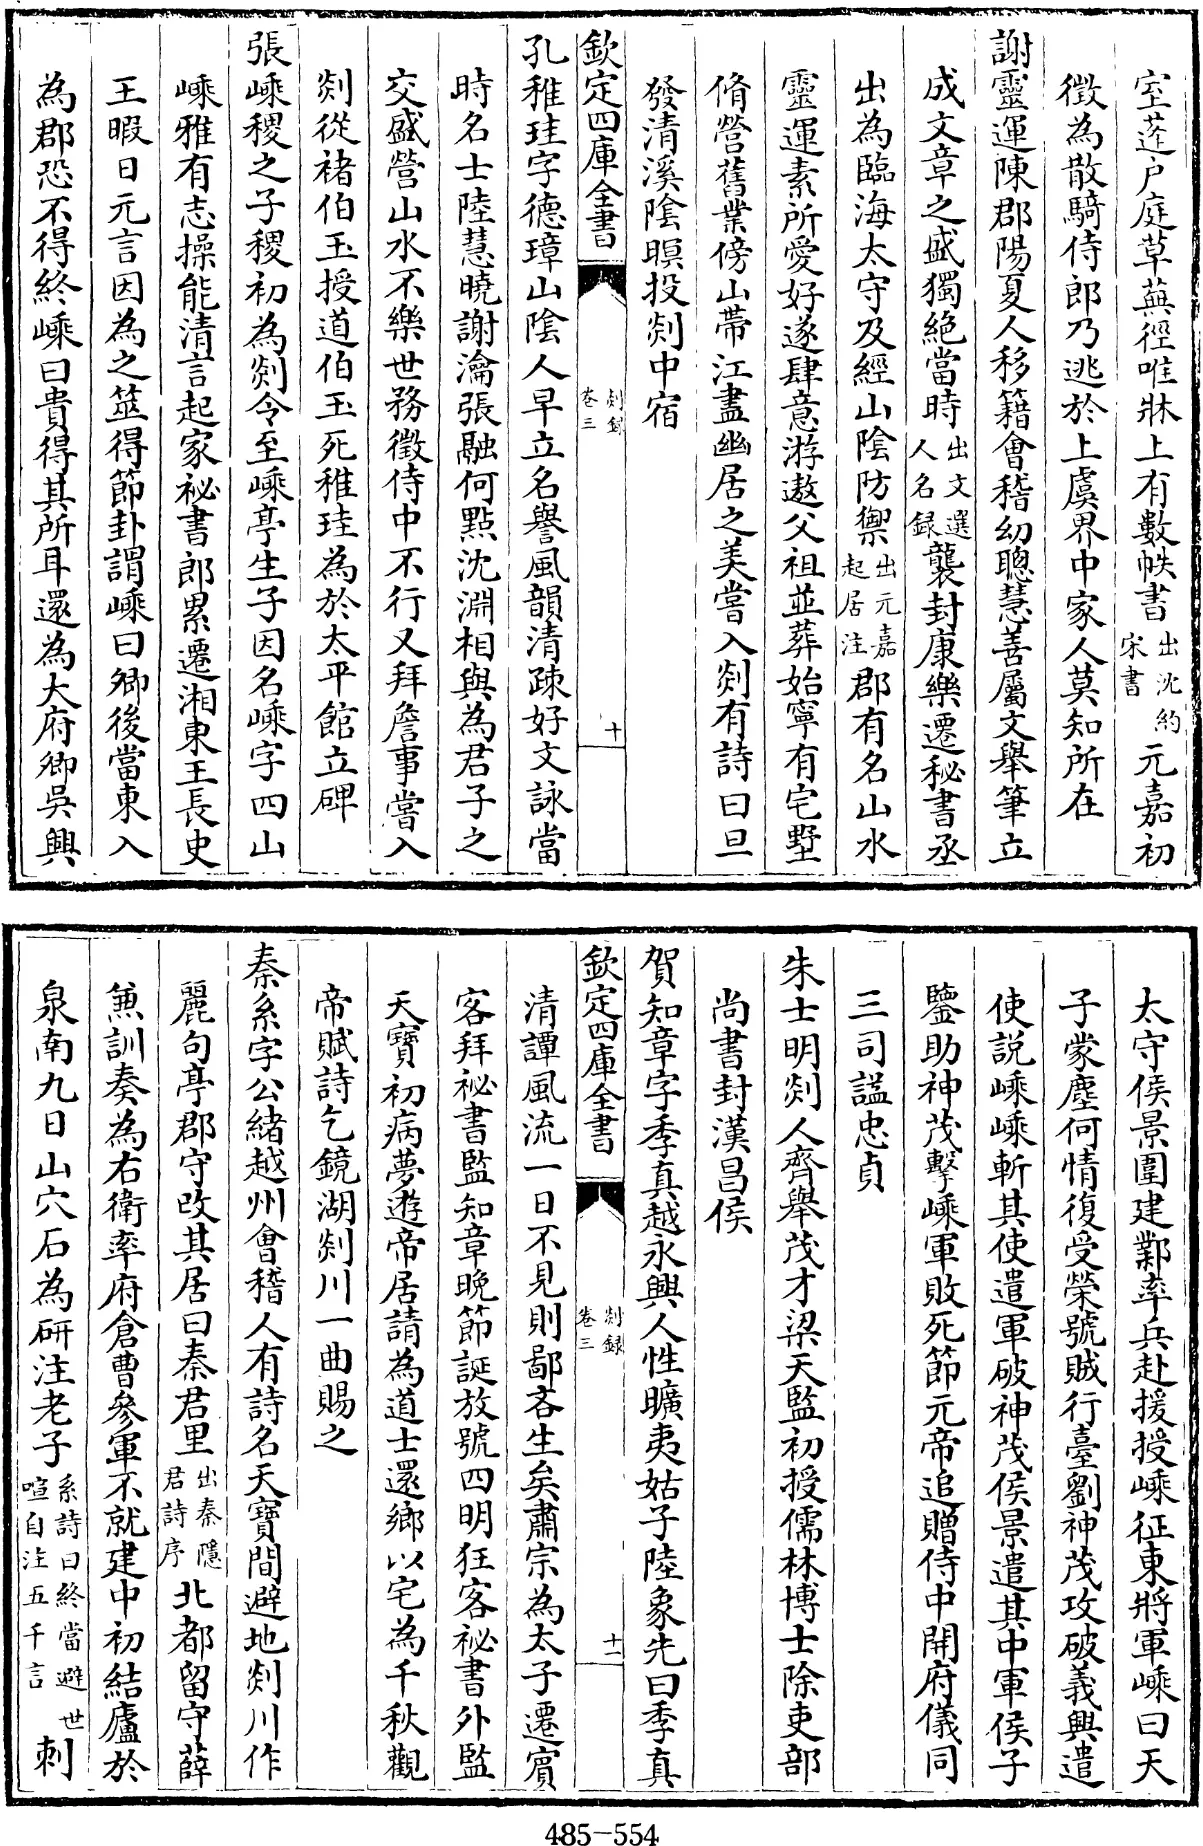 室蓬户庭草蕪徑唯牀上有數帙書出沈約宋書元嘉初
徵為散騎侍郎乃逃於上虞界中家人莫知所在
謝靈運陳郡陽夏人移籍會稽幼聰慧善屬文舉筆立
成文章之盛獨絕當時出文選人名録襲封康樂遷秘書丞
出為臨海太守及經山陰防禦出元嘉起居注郡有名山水
靈運素所愛好遂肆意游遨父祖並葬始寧有宅墅
脩營舊業傍山帶江盡幽居之美嘗入剡有詩曰旦
發清溪陰暝投剡中宿
欽定四庫全書
剡録
卷三
十
孔稚珪字德璋山陰人早立名譽風韻清疎好文詠當
時名士陸慧曉謝瀹張融何點沈淵相與為君子之
交盛營山水不樂世務徵侍中不行又拜詹事嘗入
剡從褚伯玉授道伯玉死稚珪為於太平館立碑
張嵊稷之子稷初為剡令至嵊亭生子因名嵊字四山
嵊雅有志操能清言起家祕書郎累遷湘東王長史
王暇日元言因為之筮得節卦謂嵊曰卿後當東入
為郡恐不得終嵊曰貴得其所耳還為大府卿吳興
太守侯景圍建鄴率兵赴援授嵊征東將軍嵊曰天
子蒙塵何情復受榮號賊行臺劉神茂攻破義興遣
使説嵊嵊斬其使遣軍破神茂侯景遣其中軍侯子
鑒助神茂擊嵊軍敗死節元帝追贈侍中開府儀同
三司謚忠貞
朱士明剡人齊舉茂才梁天監初授儒林博士除吏部
尚書封漢昌侯
賀知章字季真越永興人性曠夷姑子陸象先曰季真
欽定四庫全書
剡録
卷三
十一
清譚風流一日不見則鄙吝生矣肅宗為太子遷賓
客拜祕書監知章晩節誕放號四明狂客祕書外監
天寶初病夢遊帝居請為道士還鄉以宅為千秋觀
帝賦詩乞鏡湖剡川一曲賜之
秦系字公緒越州會稽人有詩名天寶間避地剡川作
麗句亭郡守改其居曰秦君里出秦隱君詩序北都留守薛
兼訓奏為右衛率府倉曹參軍不就建中初結廬於
泉南九日山穴石為研注老子系詩曰終當避世喧自注五千言刺
485-554